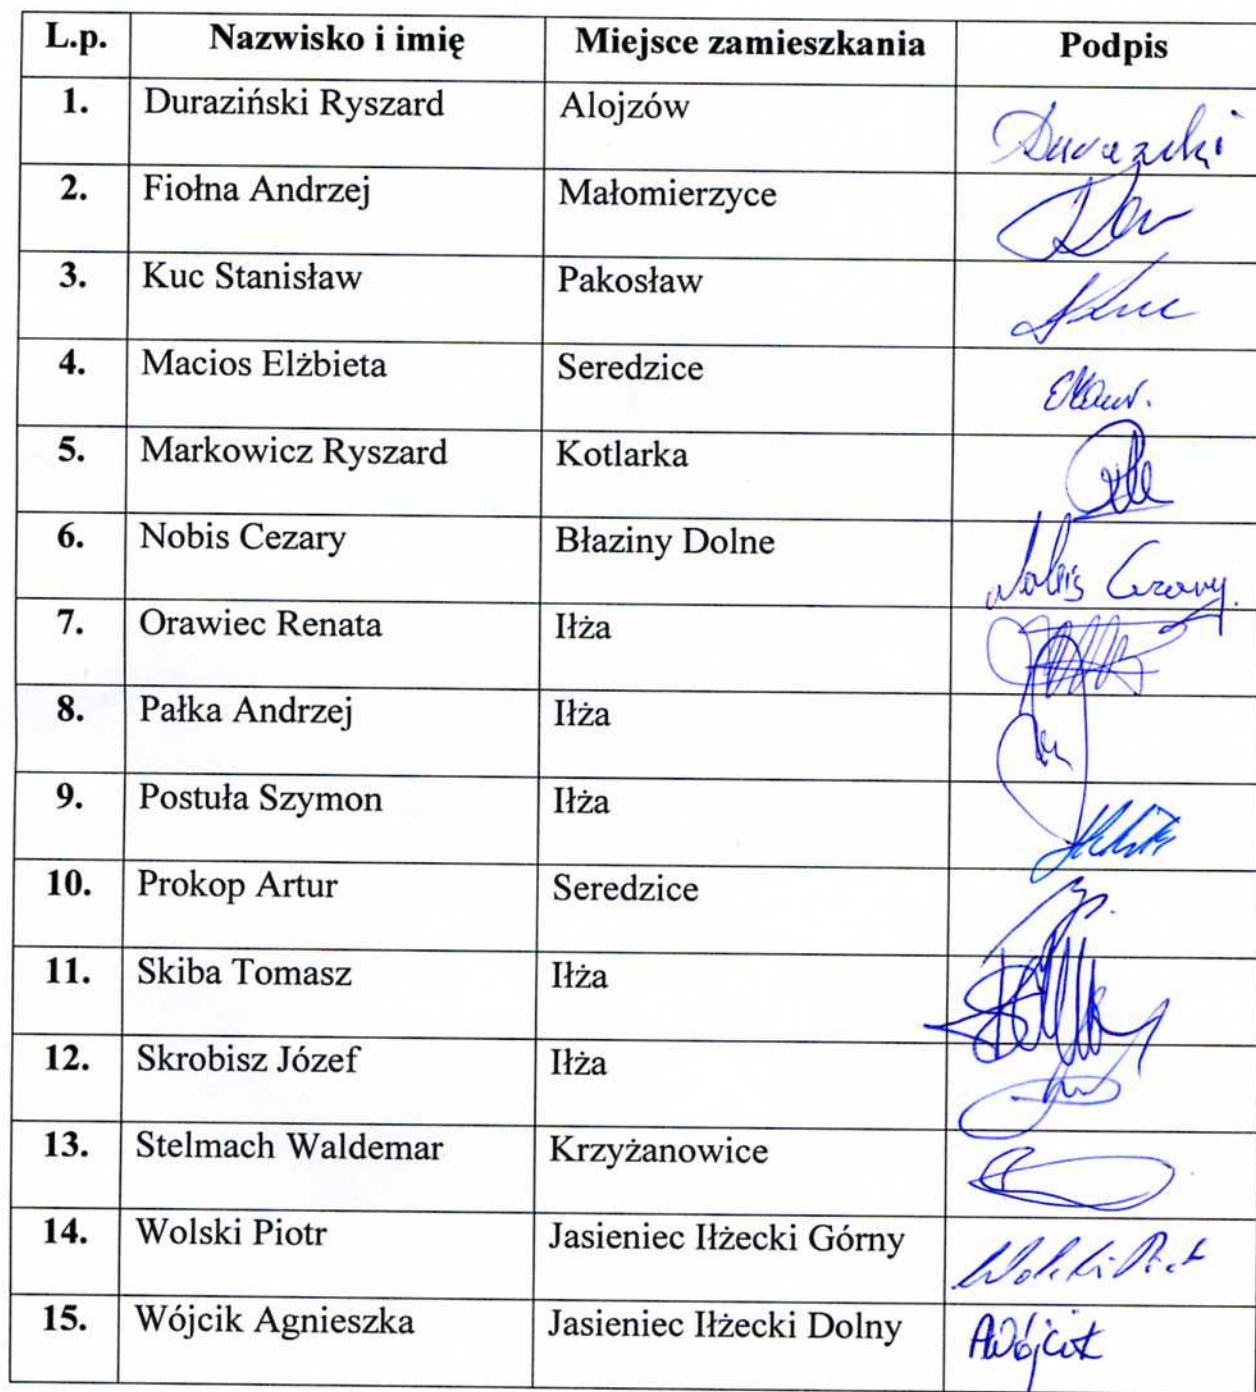 L.p. Nazwisko i imię Miejsce zamieszkania Podpis
1. Duraziński Ryszard Alojzów
2. Fiołna Andrzej Małomierzyce
3. Kuc Stanisław Pakosław
4. Macios Elżbieta Seredzice
5. Markowicz Ryszard Kotlarka
6. Nobis Cezary Błaziny Dolne Nobis Cezary
7. Orawiec Renata Iłża
8. Pałka Andrzej Iłża
9. Postuła Szymon Iłża
10. Prokop Artur Seredzice
11. Skiba Tomasz Iłża
12. Skrobisz Józef Iłża
13. Stelmach Waldemar Krzyżanowice
14. Wolski Piotr Jasieniec Iłżecki Górny Wolski Piotr
15. Wójcik Agnieszka Jasieniec Iłżecki Dolny AWójcik